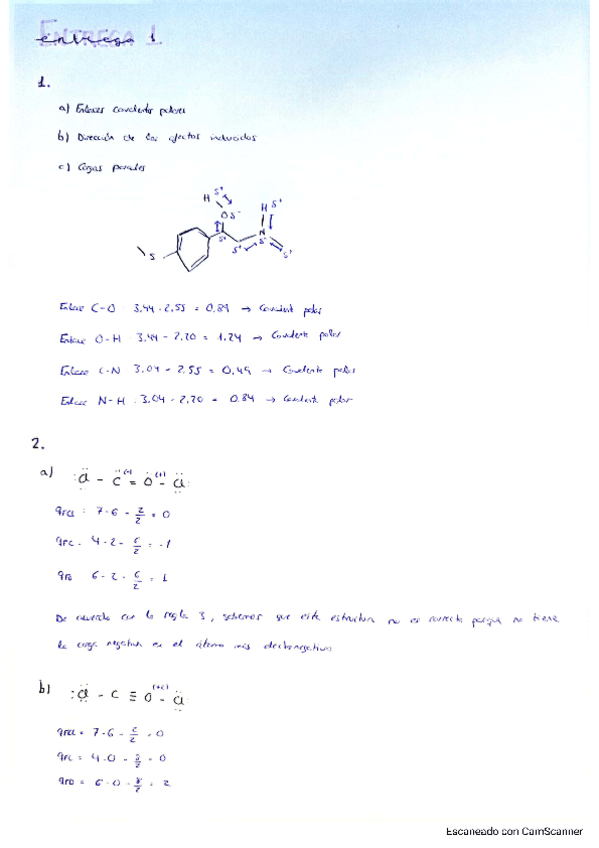 ENTREGA 1
entrega 1
1.
a) Enlaces covalentes polares
b) Dirección de los efectos inductivos
c) Cargas parciales
H δ+
O δ-
H δ+
N
δ+
δ+
δ-
δ+
S
Enlace C-O 3.44 - 2.55 = 0.89 → Covalente polar
Enlace O-H 3.44 - 2.20 = 1.24 → Covalente polar
Enlace C-N 3.04 - 2.55 = 0.49 → Covalente polar
Enlace N-H 3.04 - 2.20 = 0.84 → Covalente polar
2.
a) :Cl - C(-) = O(+) - Cl:
qfCl : 7-6 - 2/2 = 0
qfC = 4-2 - 6/2 = -1
qfO 6-2 - 6/2 = 1
De acuerdo con la regla 3, sabemos que esta estructura no es correcta porque no tiene
la carga negativa en el átomo más electronegativo
b) :Cl - C ≡ O - Cl:
qfCl = 7-6 - 2/2 = 0
qfC = 4-0 - 8/2 = 0
qfO = 6-0 - 8/2 = 2
Escaneado con CamScanner